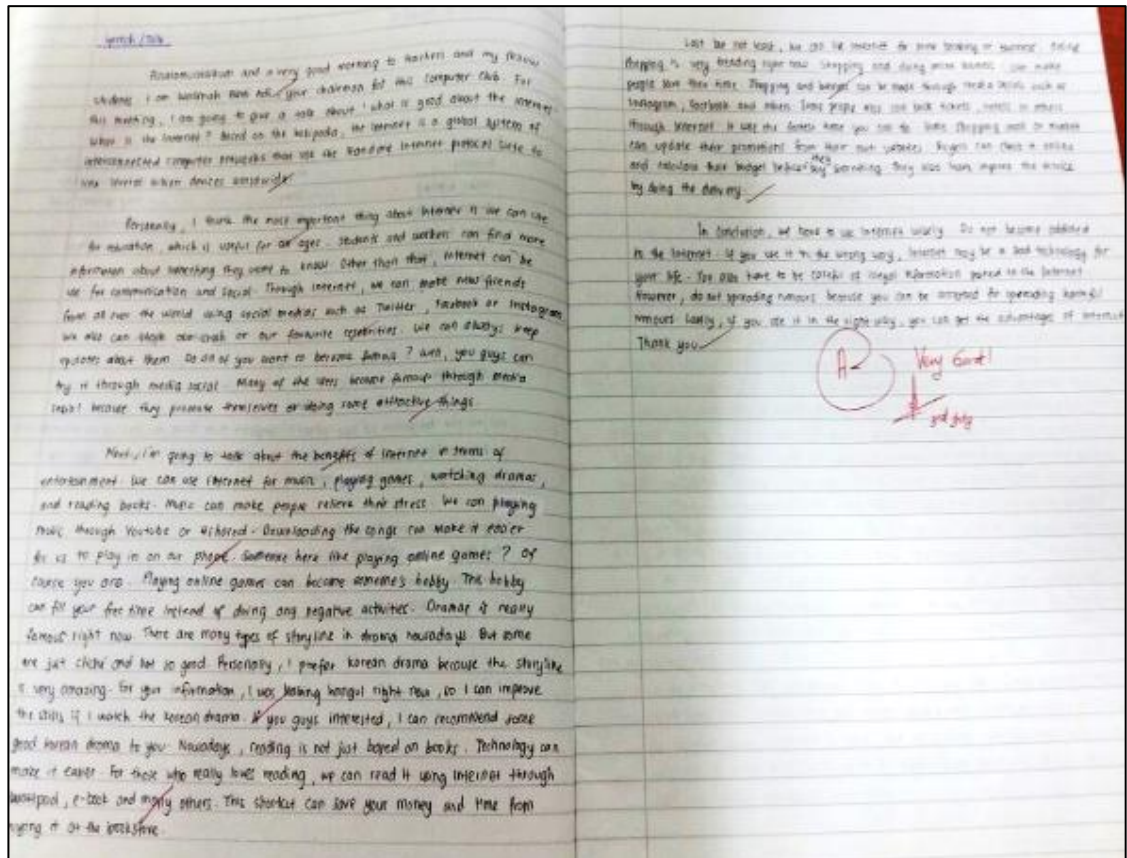 Speech / Talk
Assalamualaikum and a very good morning to teachers and my fellow
students. I am your chairman for this Computer Club. For
this meeting, I am going to give a talk about 'what is good about the internet'.
What is the internet? Based on the Wikipedia, the internet is a global system of
interconnected computer networks that use the Internet protocol suite to
link several billion devices worldwide.
Personally, I think the most important thing about internet is we can use
for education, which is useful for all ages. Students and workers can find more
information about something they want to know. Other than that, internet can be
use for communication and social. Through internet, we can make new friends
from all over the world using social medias such as Twitter, Facebook or Instagram.
We also can our crush or our favourite celebrities. We can always keep
updates about them. Do all of you want to become famous? Well, you guys can
try it through media social. Many of the users become famous through media
social because they promote themselves or doing some attractive things.
Next, I'm going to talk about the benefits of internet in terms of
entertainment. We can use internet for music, playing games, watching dramas,
and reading books. Music can make people relieve their stress. We can playing
music through Youtube or 4shared. Downloading the songs can make it easier
for us to play in on our phone. Someone here like playing online games? Of
course you are. Playing online games can become someone's hobby. This hobby
can fill your free time instead of doing any negative activities. Dramas is really
famous right now. There are many types of storyline in drama nowadays. But some
are just cliché and not so good. Personally, I prefer korean drama because the storyline
is very amazing. For your information, I was hangul right now, so I can improve
the skills if I watch the korean drama. If you guys interested, I can recommend some
good korean drama to you. Nowadays, reading is not just based on books. Technology can
make it easier. For those who really loves reading, we can read it using internet through
wattpad, e-book and many others. This shortcut can save your money and time from
buying it at the bookstore.
Last but not least, we can use internet for online booking or business. Online
shopping is very trending right now. Shopping and doing online business can make
people save their time. Shopping and business can be made through media social such as
Instagram, Facebook and others. Some people also can book tickets, hotels or others
through internet. It was the fastest time you can do. Some shopping mall or market
can update their promotions from their own websites. Buyers can check it online
and calculate their budget before they buy something. They also have improve the service
by doing the delivery.
In conclusion, we have to use internet wisely. Do not become addicted
to the internet. If you use it in the wrong way, internet may be a bad technology for
your life. You also have to be careful of illegal information posted in the internet.
However, do not spreading rumours because you can be arrested for spreading harmful
rumours. Lastly, if you use it in the right way, you can get the advantages of internet.
Thank you.
A-
Very Good!